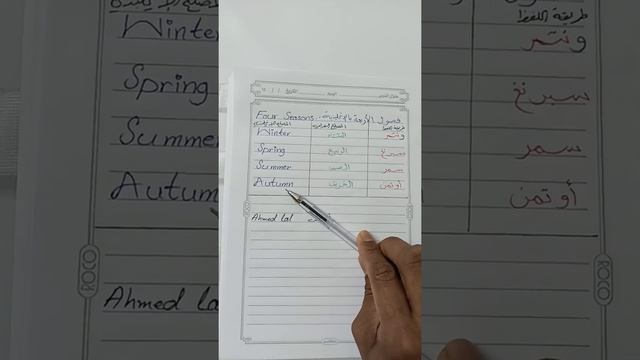 Four Seasons. فصول الأربعة بالإنجليزية
Winter الشتاء ونتر
Spring الربيع سبرنغ
Summer الصيف سمر
Autumn الخريف أوتمن
Ahmed Lal
ROCO
Winter
Spring
Summer
Autumn
Ahmed La
طريقة اللفظ
ونتر
سبرنغ
سمر
أوتمن
ROCO